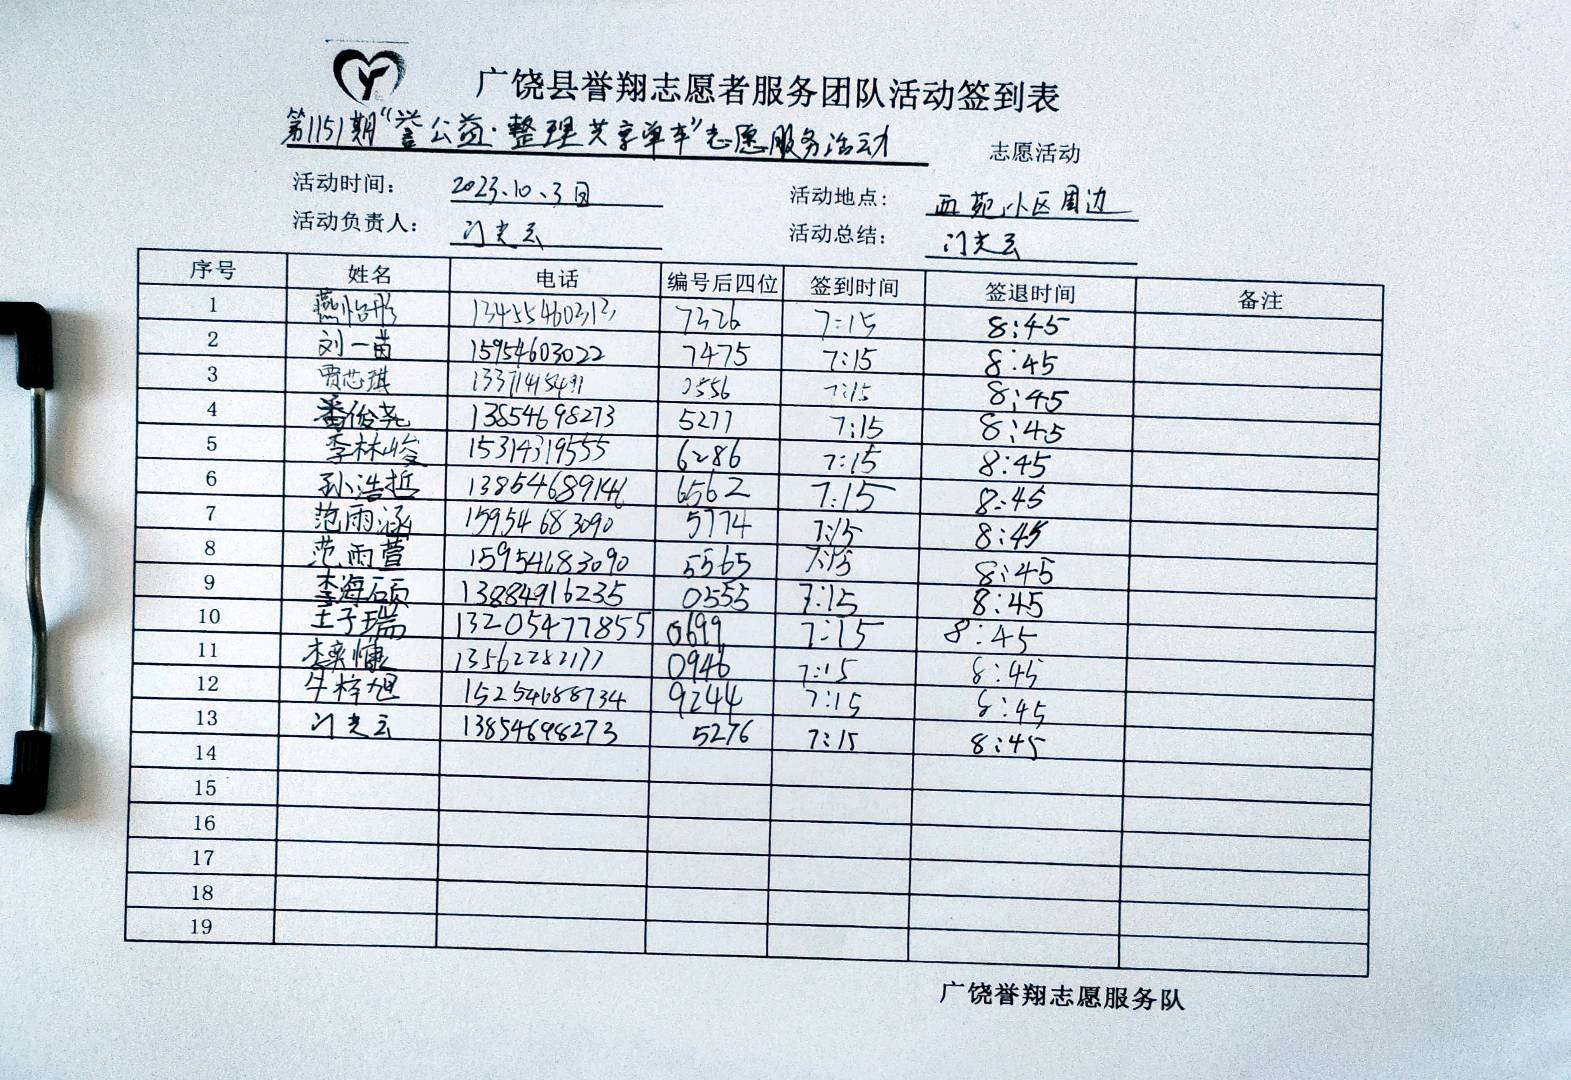 广饶县誉翔志愿者服务团队活动签到表
第1151期“誉公益·整理共享单车”志愿服务活动 志愿活动
活动时间: 2023.10.3日 活动地点: 西苑小区周边
活动负责人: 门光云 活动总结: 门光云
序号 姓名 电话 编号后四位 签到时间 签退时间 备注
1 燕怡彤 7326 7:15 8:45
2 刘一苗 15954603022 7475 7:15 8:45
3 贾芯琪 2556 7:15 8:45
4 潘俊尧 13854698273 5277 7:15 8:45
5 李林峻 15314319555 6286 7:15 8:45
6 孙浩哲 13854689146 6562 7:15 8:45
7 范雨涵 15954683090 5774 7:15 8:45
8 范雨萱 15954683090 5565 7:15 8:45
9 李海硕 13884916235 0555 7:15 8:45
10 王子瑞 13205477855 0699 7:15 8:45
11 李奕慷 13562282177 0946 7:15 8:45
12 牛梓旭 15254688734 9244 7:15 8:45
13 门光云 13854698273 5276 7:15 8:45
14
15
16
17
18
19
广饶誉翔志愿服务队